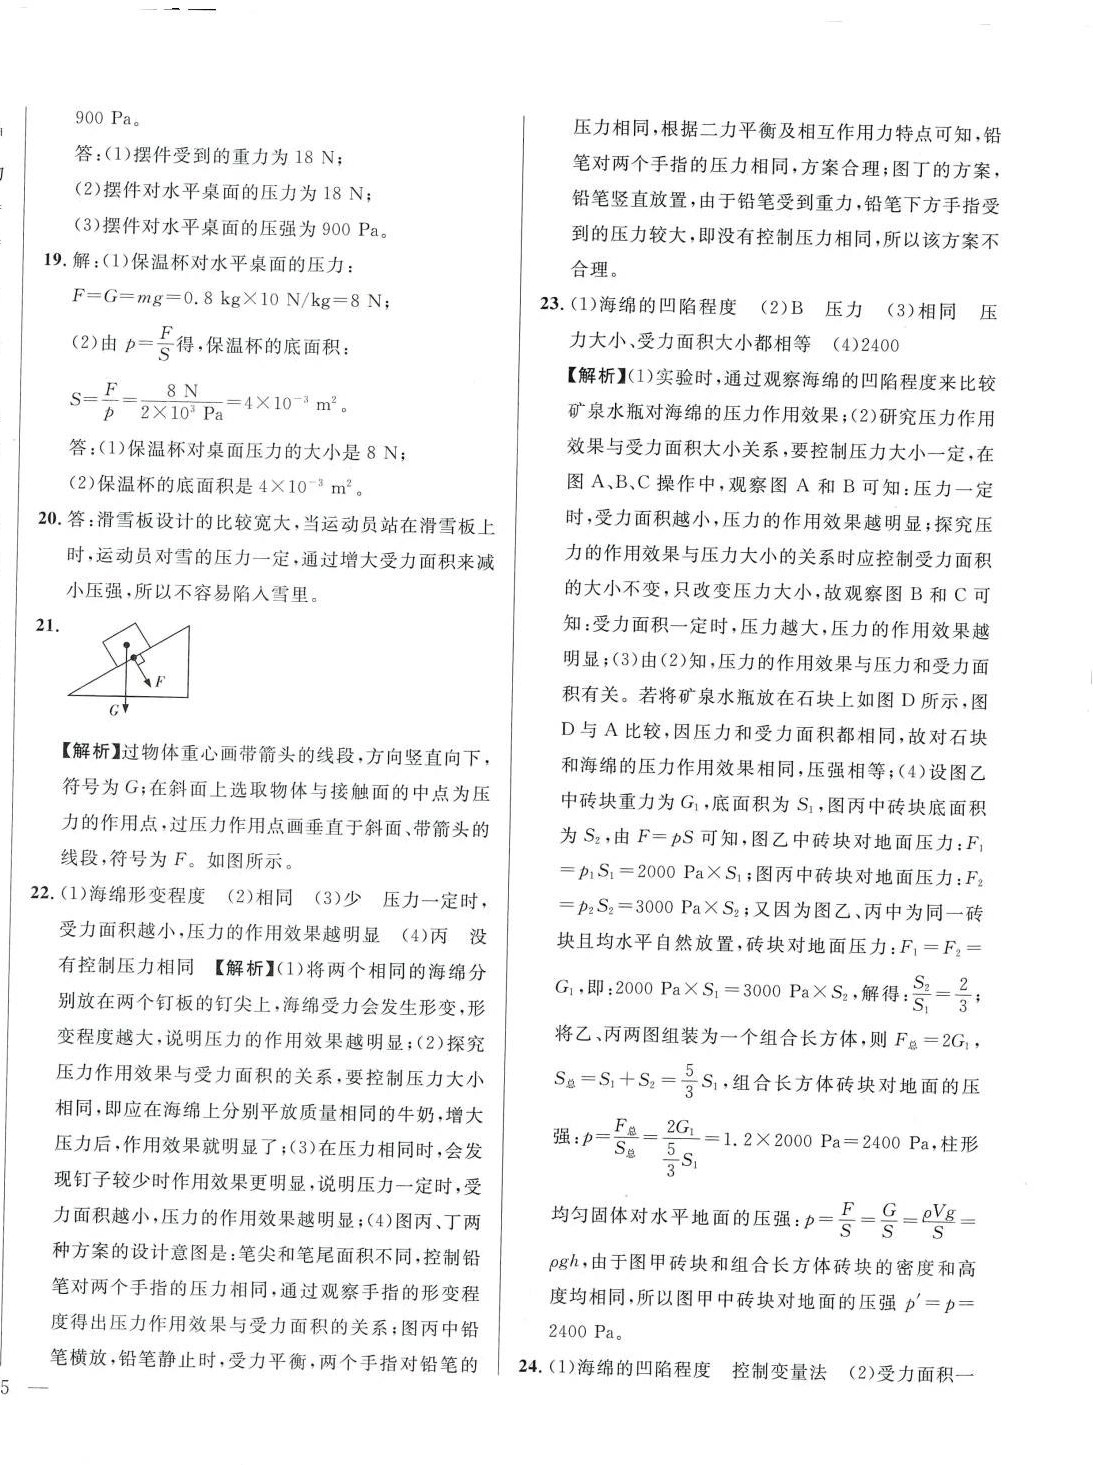 900 Pa。
答:(1)摆件受到的重力为 18 N;
(2)摆件对水平桌面的压力为 18 N;
(3)摆件对水平桌面的压强为 900 Pa。
19. 解:(1)保温杯对水平桌面的压力:
F=G=mg=0.8 kg×10 N/kg=8 N;
(2)由 p=F/S得,保温杯的底面积:
S=F/p=8 N/(2×10³ Pa)=4×10⁻³ m²。
答:(1)保温杯对桌面压力的大小是 8 N;
(2)保温杯的底面积是 4×10⁻³ m²。
20. 答:滑雪板设计的比较宽大,当运动员站在滑雪板上
时,运动员对雪的压力一定,通过增大受力面积来减
小压强,所以不容易陷入雪里。
21.
F
G
【解析】过物体重心画带箭头的线段,方向竖直向下,
符号为 G;在斜面上选取物体与接触面的中点为压
力的作用点,过压力作用点画垂直于斜面、带箭头的
线段,符号为 F。如图所示。
22. (1)海绵形变程度 (2)相同 (3)少 压力一定时,
受力面积越小,压力的作用效果越明显 (4)丙 没
有控制压力相同 【解析】(1)将两个相同的海绵分
别放在两个钉板的钉尖上,海绵受力会发生形变,形
变程度越大,说明压力的作用效果越明显;(2)探究
压力作用效果与受力面积的关系,要控制压力大小
相同,即应在海绵上分别平放质量相同的牛奶,增大
压力后,作用效果就明显了;(3)在压力相同时,会发
现钉子较少时作用效果更明显,说明压力一定时,受
力面积越小,压力的作用效果越明显;(4)图丙、丁两
种方案的设计意图是:笔尖和笔尾面积不同,控制铅
笔对两个手指的压力相同,通过观察手指的形变程
度得出压力作用效果与受力面积的关系;图丙中铅
笔横放,铅笔静止时,受力平衡,两个手指对铅笔的
5 —
压力相同,根据二力平衡及相互作用力特点可知,铅
笔对两个手指的压力相同,方案合理;图丁的方案,
铅笔竖直放置,由于铅笔受到重力,铅笔下方手指受
到的压力较大,即没有控制压力相同,所以该方案不
合理。
23. (1)海绵的凹陷程度 (2)B 压力 (3)相同 压
力大小、受力面积大小都相等 (4)2400
【解析】(1)实验时,通过观察海绵的凹陷程度来比较
矿泉水瓶对海绵的压力作用效果;(2)研究压力作用
效果与受力面积大小关系,要控制压力大小一定,在
图 A、B、C 操作中,观察图 A 和 B 可知:压力一定
时,受力面积越小,压力的作用效果越明显;探究压
力的作用效果与压力大小的关系时应控制受力面积
的大小不变,只改变压力大小,故观察图 B 和 C 可
知:受力面积一定时,压力越大,压力的作用效果越
明显;(3)由(2)知,压力的作用效果与压力和受力面
积有关。若将矿泉水瓶放在石块上如图 D 所示,图
D 与 A 比较,因压力和受力面积都相同,故对石块
和海绵的压力作用效果相同,压强相等;(4)设图乙
中砖块重力为 G₁,底面积为 S₁,图丙中砖块底面积
为 S₂,由 F=pS 可知,图乙中砖块对地面压力:F₁
=p₁S₁=2000 Pa×S₁;图丙中砖块对地面压力:F₂
=p₂S₂=3000 Pa×S₂;又因为图乙、丙中为同一砖
块且均水平自然放置,砖块对地面压力:F₁=F₂=
G₁,即:2000 Pa×S₁=3000 Pa×S₂,解得:S₂/S₁=2/3;
将乙、丙两图组装为一个组合长方体,则 F总=2G₁,
S总=S₁+S₂=5/3 S₁,组合长方体砖块对地面的压
强:p=F总/S总=2G₁/(5/3 S₁)=1.2×2000 Pa=2400 Pa,柱形
均匀固体对水平地面的压强:p=F/S=G/S=ρVg/S=
ρgh,由于图甲砖块和组合长方体砖块的密度和高
度均相同,所以图甲中砖块对地面的压强 p′=p=
2400 Pa。
24. (1)海绵的凹陷程度 控制变量法 (2)受力面积一